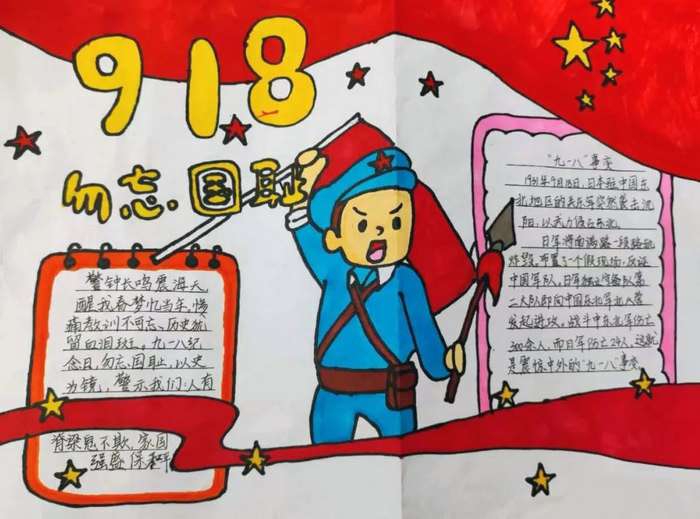 918
勿忘国耻
警钟长鸣震海天
醒我春梦忆当年,惨
痛教训不可忘、历史犹
留血泪斑。九一八纪
念日,勿忘国耻,以史
为镜,警示我们:人有
脊梁鬼不欺,家国
强盛保和平
"九一八"事变
1931年9月18日,日本在中国东
北地区的关东军突然袭击沈
阳,以武力侵占东北。
日军将南满路一段路轨
炸毁,布置了一个假现场,反诬
中国军队。日军独立守备队第
二大队即向中国东北军北大营
发起进攻,战斗中东北军伤亡
300余人,而日军伤亡24人,这就
是震惊中外的"九一八"事变